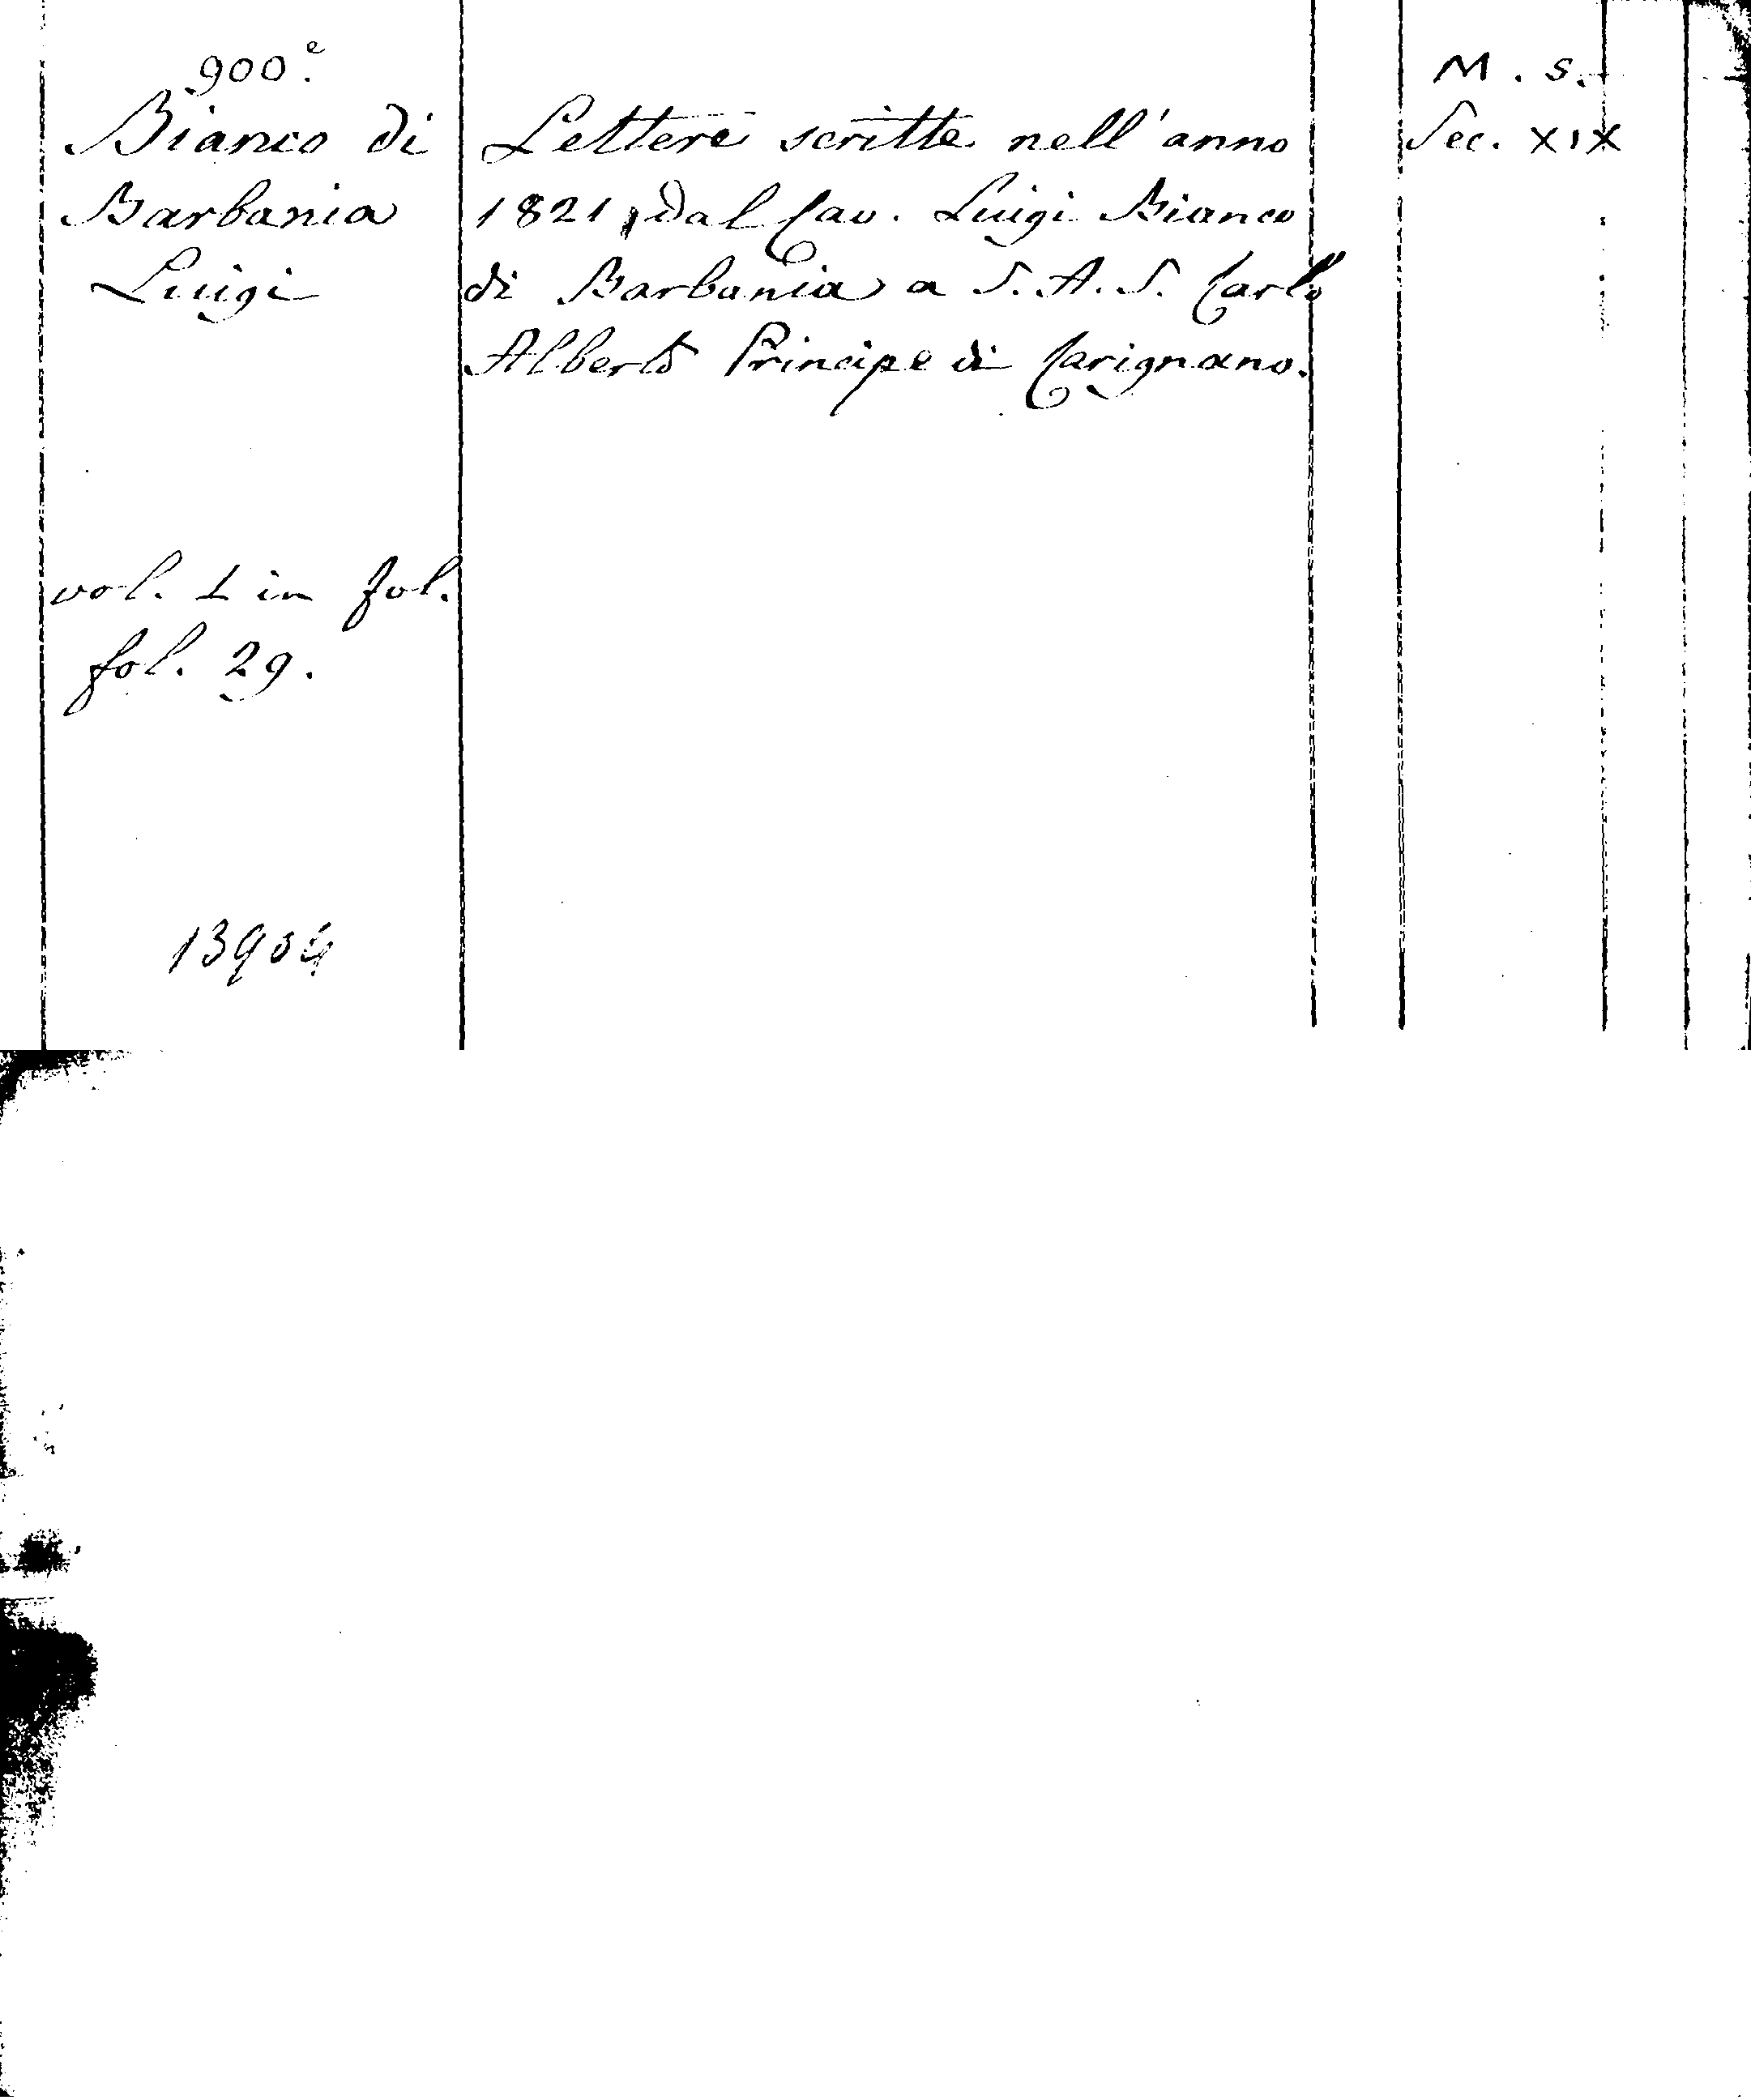 900.e
Bianco di
Barbania
Luigi
vol. 1 in fol.
fol. 29.
13904
Lettere scritte nell'anno
1821, dal Cav. Luigi Bianco
di Barbania a S. A. S. Carlo
Alberto Principe di Carignano.
M. s.
Sec. XIX